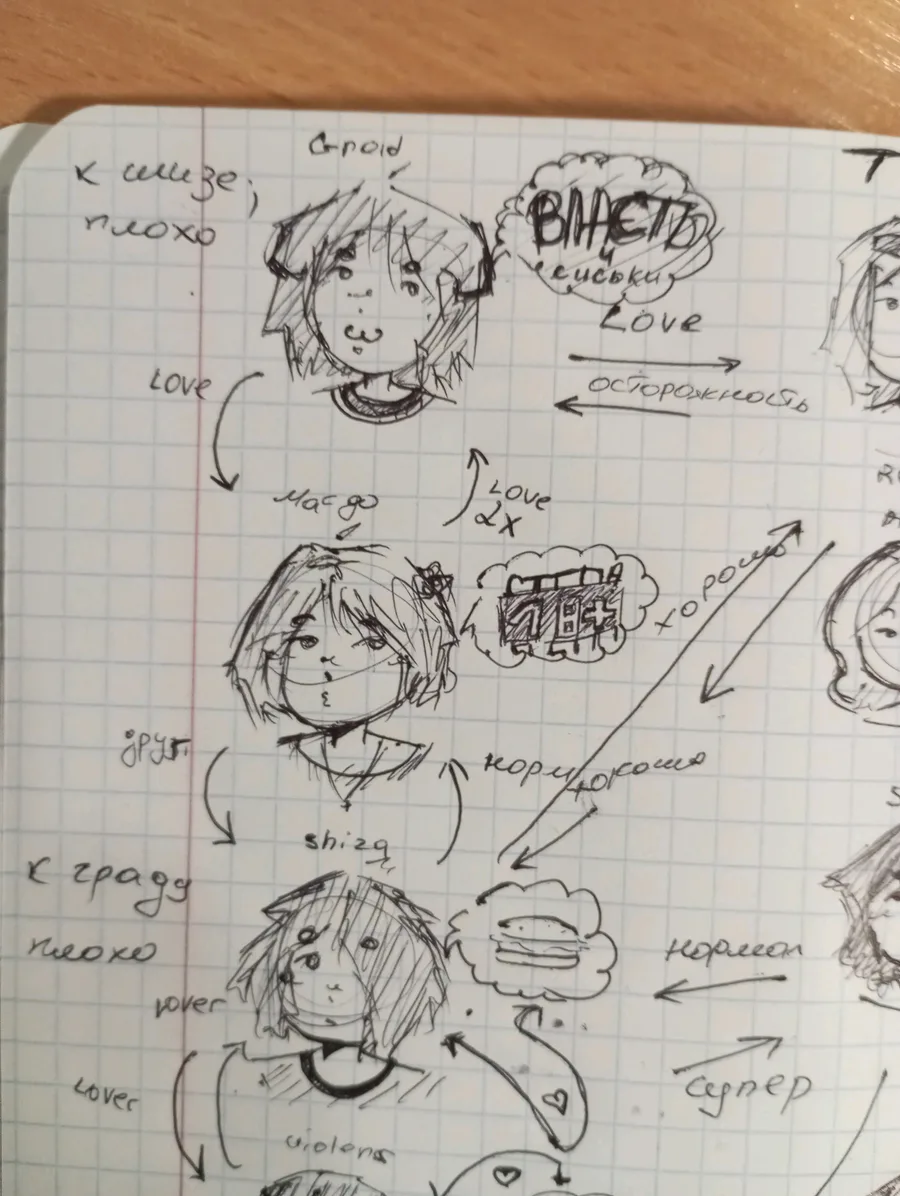 к шизе;
плохо
Gnoid
ВЛАСТЬ
и
сиськи
Love
осторожность
Love
Love
2x
Мас-до
18+
хорошо
друг
норм
хорошо
shiza
к граду
плохо
нормал
lover
Lover
супер
violens